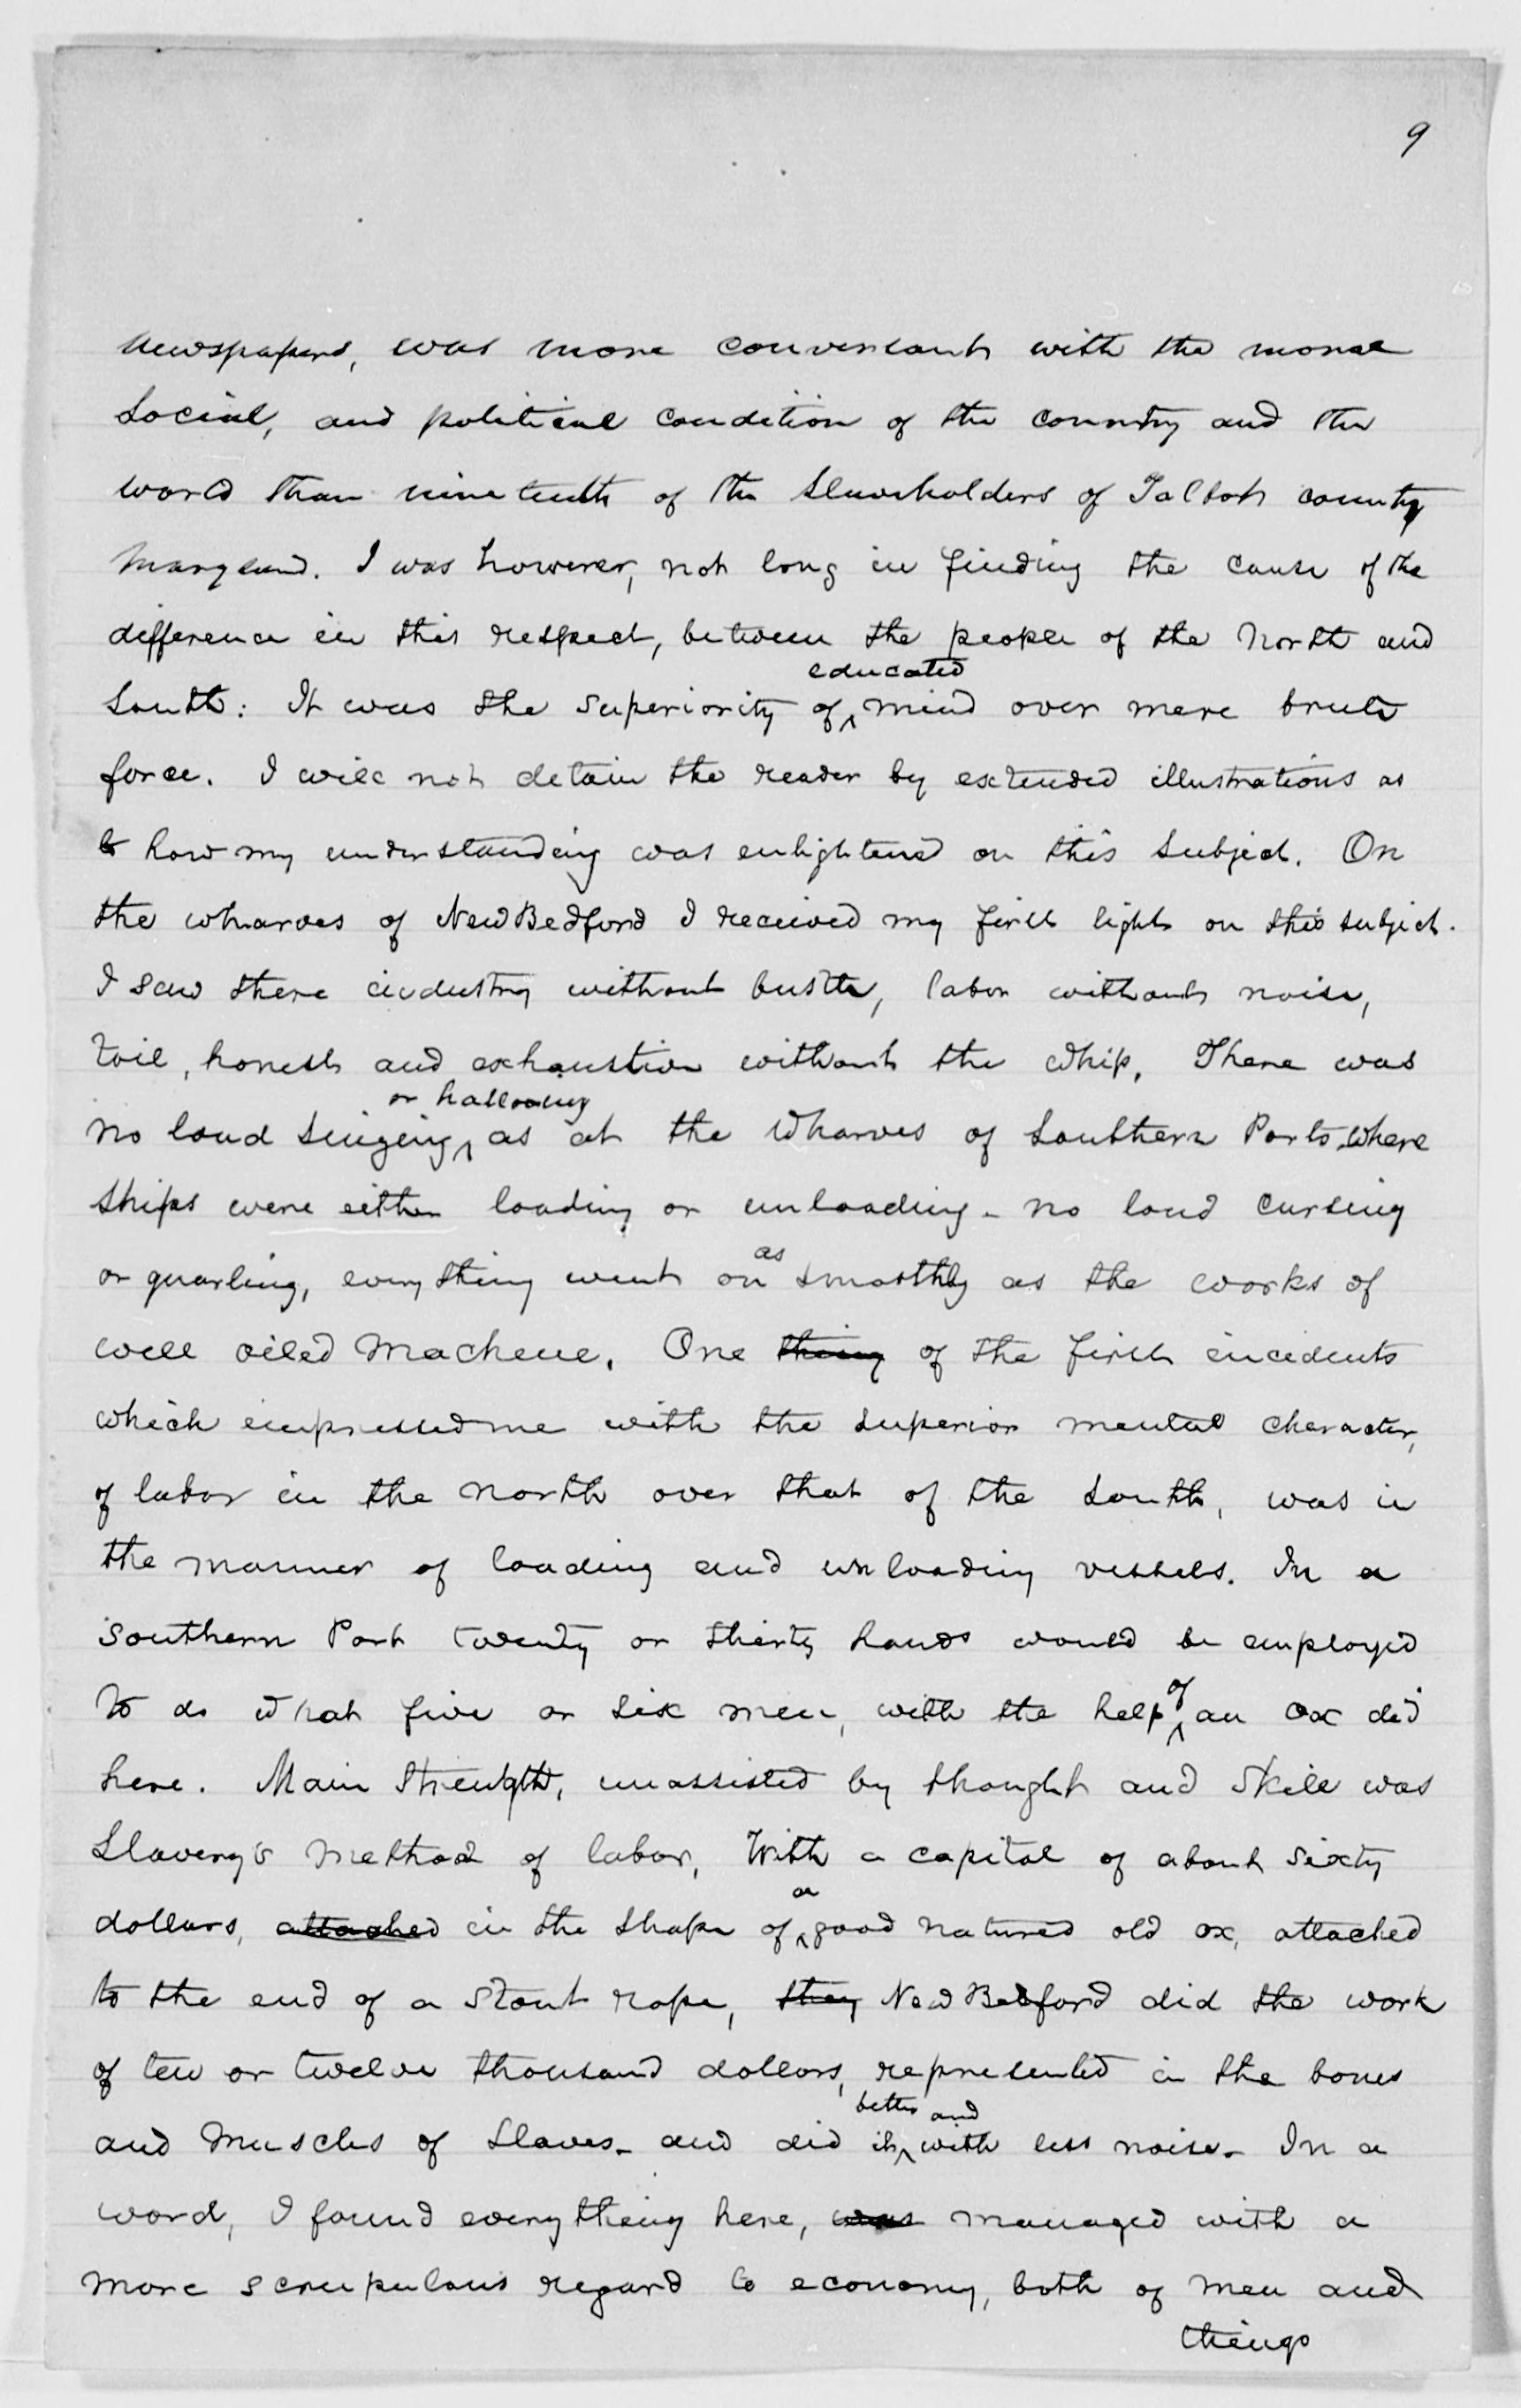 9
newspapers, was more conversant with the moral
social, and political condition of the country and the
world than nine tenths of the Slaveholders of Talbot county
Maryland. I was however, not long in finding the cause of the
difference in this respect, between the people of the North and
educated
South: It was the superiority of ‸ mind over mere brute
force. I will not detain the reader by extended illustrations as
to how my understanding was enlightened on this subject. On
the wharves of New Bedford I received my first light on this subject.
I saw there industry without bustle, labor without noise,
toil, honest and exhaustive without the whip. There was
or hallooing
no loud singing ‸ as at the wharves of Southern Ports where
ships were either loading or unloading - no loud cursing
as
or quarling, every thing went on smoothly as the works of
well oiled Machene. One thing of the first incidents
which impressed me with the superior mental character,
of labor in the north over that of the South, was in
the manner of loading and unloading vessels. In a
Southern Port twenty or thirty hands would be employed
of
to do what five or six men, with the help ‸ an ox did
here. Main Strength, unassisted by thought and skill was
Slavery's method of labor, With a capital of about sixty
a
dollars, attached in the shape of ‸ good natured old ox, attached
to the end of a stout rope, they New Bedford did the work
of ten or twelve thousand dollars, represented in the bones
better and
and muscles of Slaves - and did it ‸ with less noise - In a
word, I found everything here, was managed with a
more scrupulous regard to economy, both of men and
things